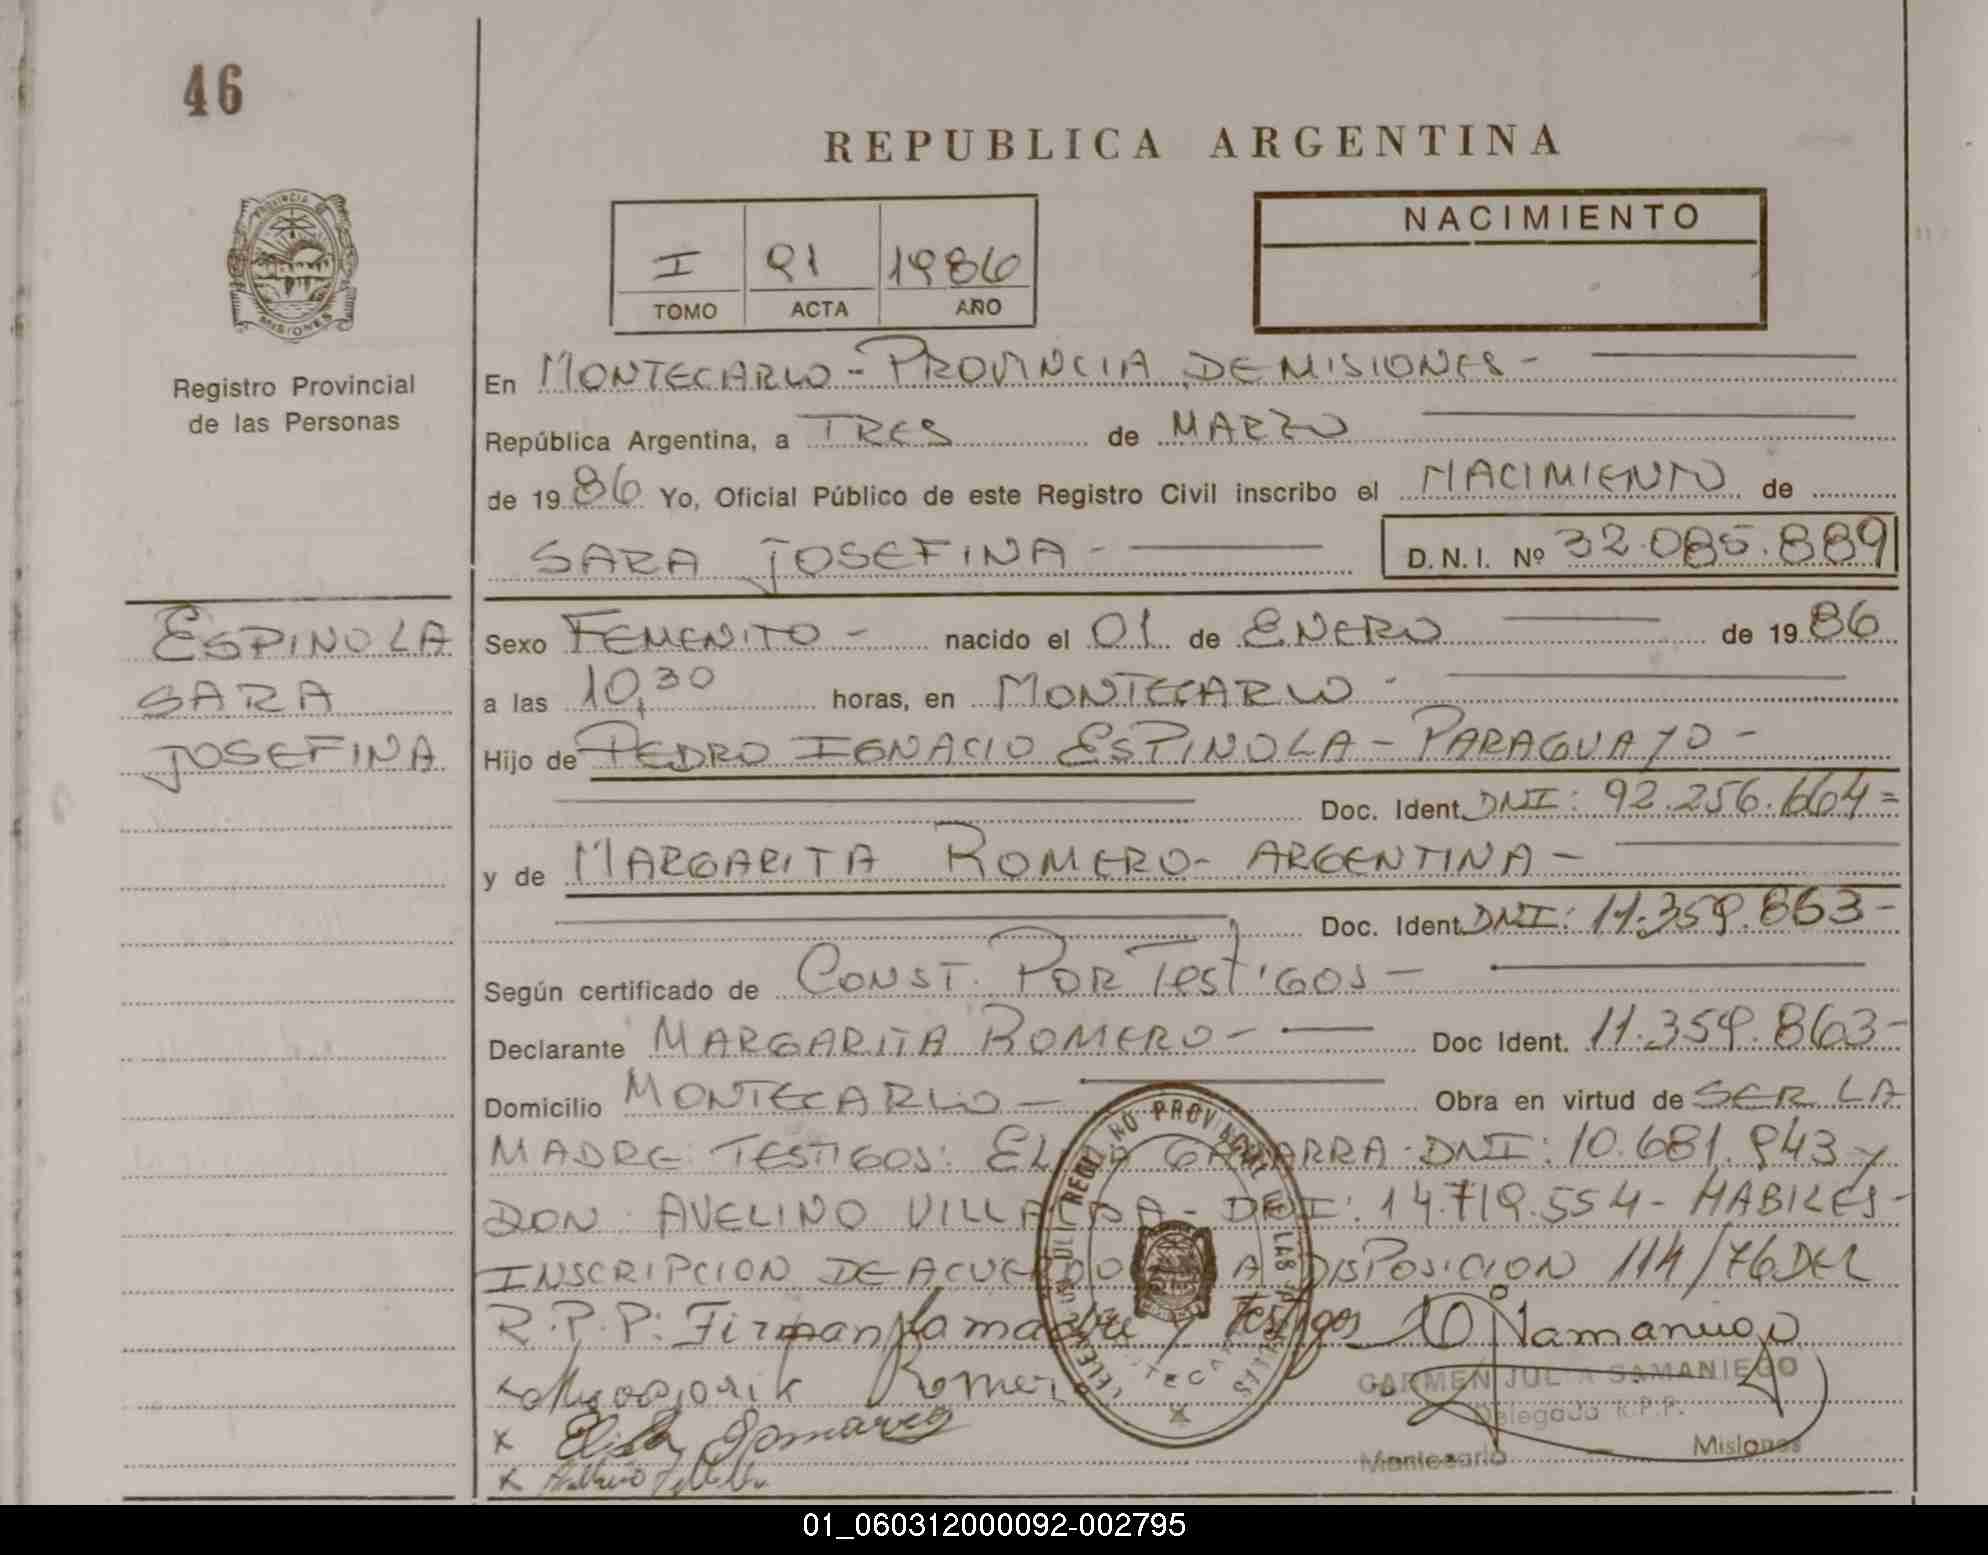 46
REPUBLICA ARGENTINA
NACIMIENTO
I 91 1986
TOMO ACTA AÑO
PROVINCIA DE
MISIONES
Registro Provincial
de las Personas
En MONTECARLO - PROVINCIA DE MISIONES -
República Argentina, a TRES de MARZO
de 1986 Yo, Oficial Público de este Registro Civil inscribo el NACIMIENTO de
SARA JOSEFINA - D.N.I. Nº 32.085.889
ESPINOLA
SARA
JOSEFINA
Sexo FEMENITO - nacido el 01 de ENERO de 1986
a las 10,30 horas, en MONTECARLO -
Hijo de PEDRO IGNACIO ESPINOLA - PARAGUAYO -
Doc. Ident. DNI: 92.256.664 =
y de MARGARITA ROMERO - ARGENTINA -
Doc. Ident. DNI: 11.359.863 -
Según certificado de CONST. POR TESTIGOS -
Declarante MARGARITA ROMERO - Doc Ident. 11.359.863 -
Domicilio MONTECARLO - Obra en virtud de SER LA
MADRE: TESTIGOS: GAMARRA - DNI: 10.681.943 y
DON AVELINO - DNI: 14.719.554 - HABILES -
INSCRIPCION DE ACUERDO A DISPOSICION 114/76 DEL
R.P.P: Firman la madre y testigos
x Romero
x Elisa Gamarra
x
CARMEN JULIA SAMANIEGO
Delegada R.P.P.
Montecarlo - Misiones
01_060312000092-002795